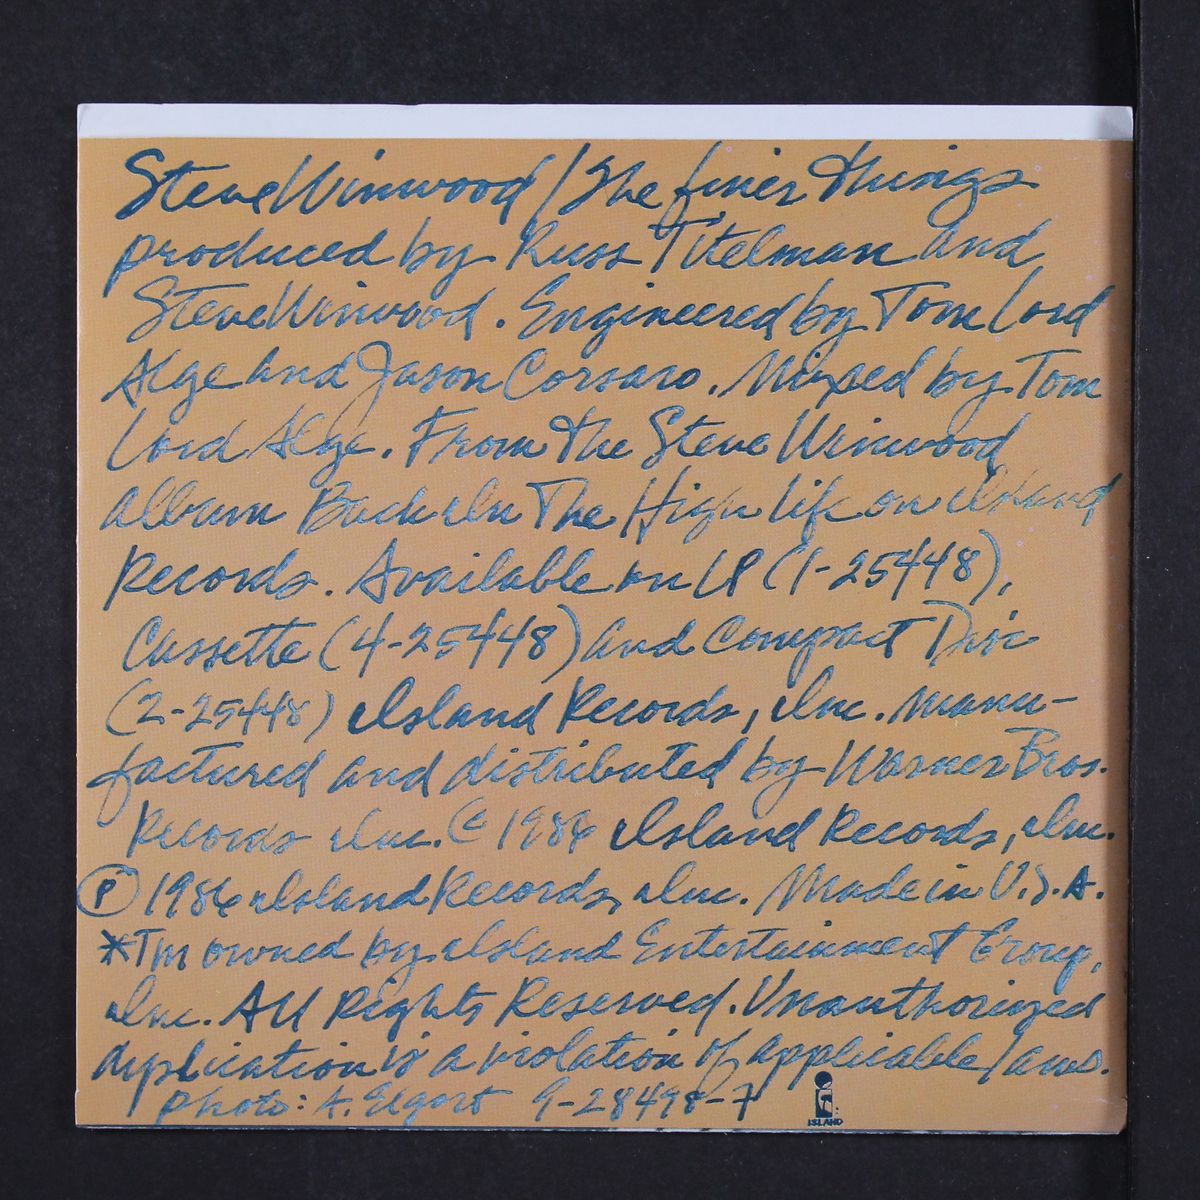 Steve Winwood / The Finer Things
produced by Russ Titelman and
Steve Winwood. Engineered by Tom Lord
Alge and Jason Corsaro. Mixed by Tom
Lord Alge. From The Steve Winwood
album Back In The High Life on Island
Records. Available on LP (1-25448),
Cassette (4-25448) and Compact Disc
(2-25448) Island Records, Inc. Manu-
factured and distributed by Warner Bros.
Records Inc. © 1986 Island Records, Inc.
℗ 1986 Island Records, Inc. Made in U.S.A.
*TM owned by Island Entertainment Group,
Inc. All Rights Reserved. Unauthorized
duplication is a violation of applicable laws.
Photo: A. Elgort 9-28498-7
ISLAND